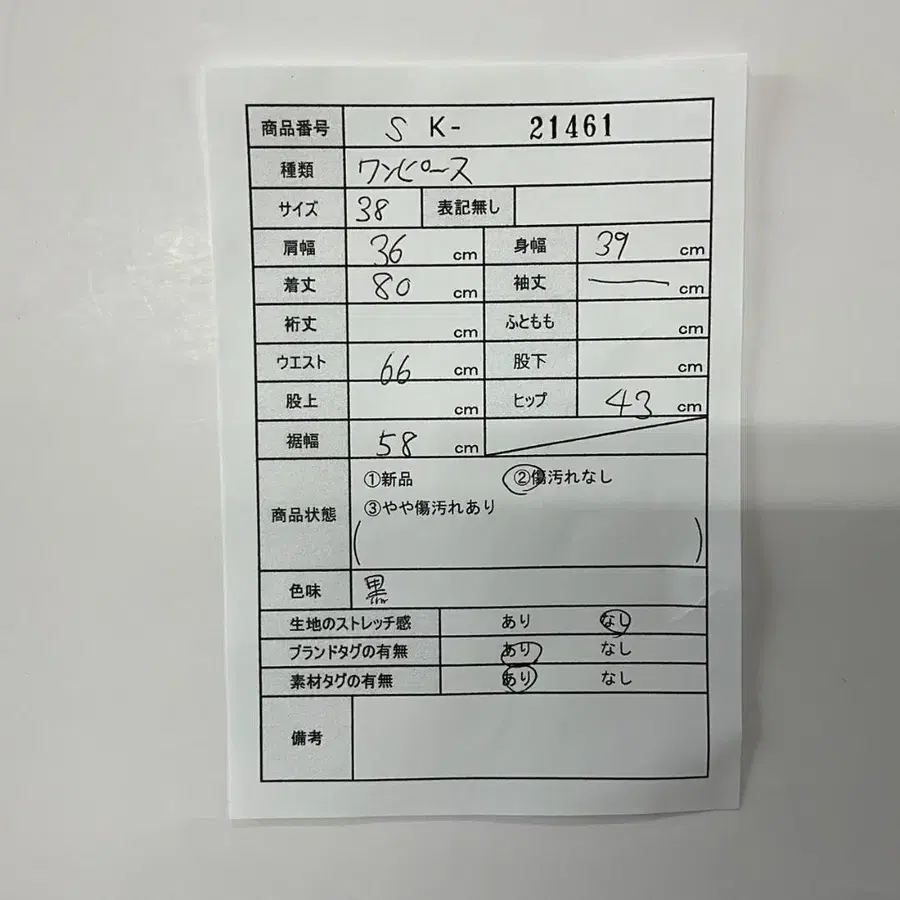 商品番号 S K- 21461
種類 ワンピース
サイズ 38 表記無し
肩幅 36 cm 身幅 39 cm
着丈 80 cm 袖丈 — cm
裄丈 cm ふともも cm
ウエスト 66 cm 股下 cm
股上 cm ヒップ 43 cm
裾幅 58 cm
①新品 ②傷汚れなし
商品状態 ③やや傷汚れあり
( )
色味 黒
生地のストレッチ感 あり なし
ブランドタグの有無 あり なし
素材タグの有無 あり なし
備考